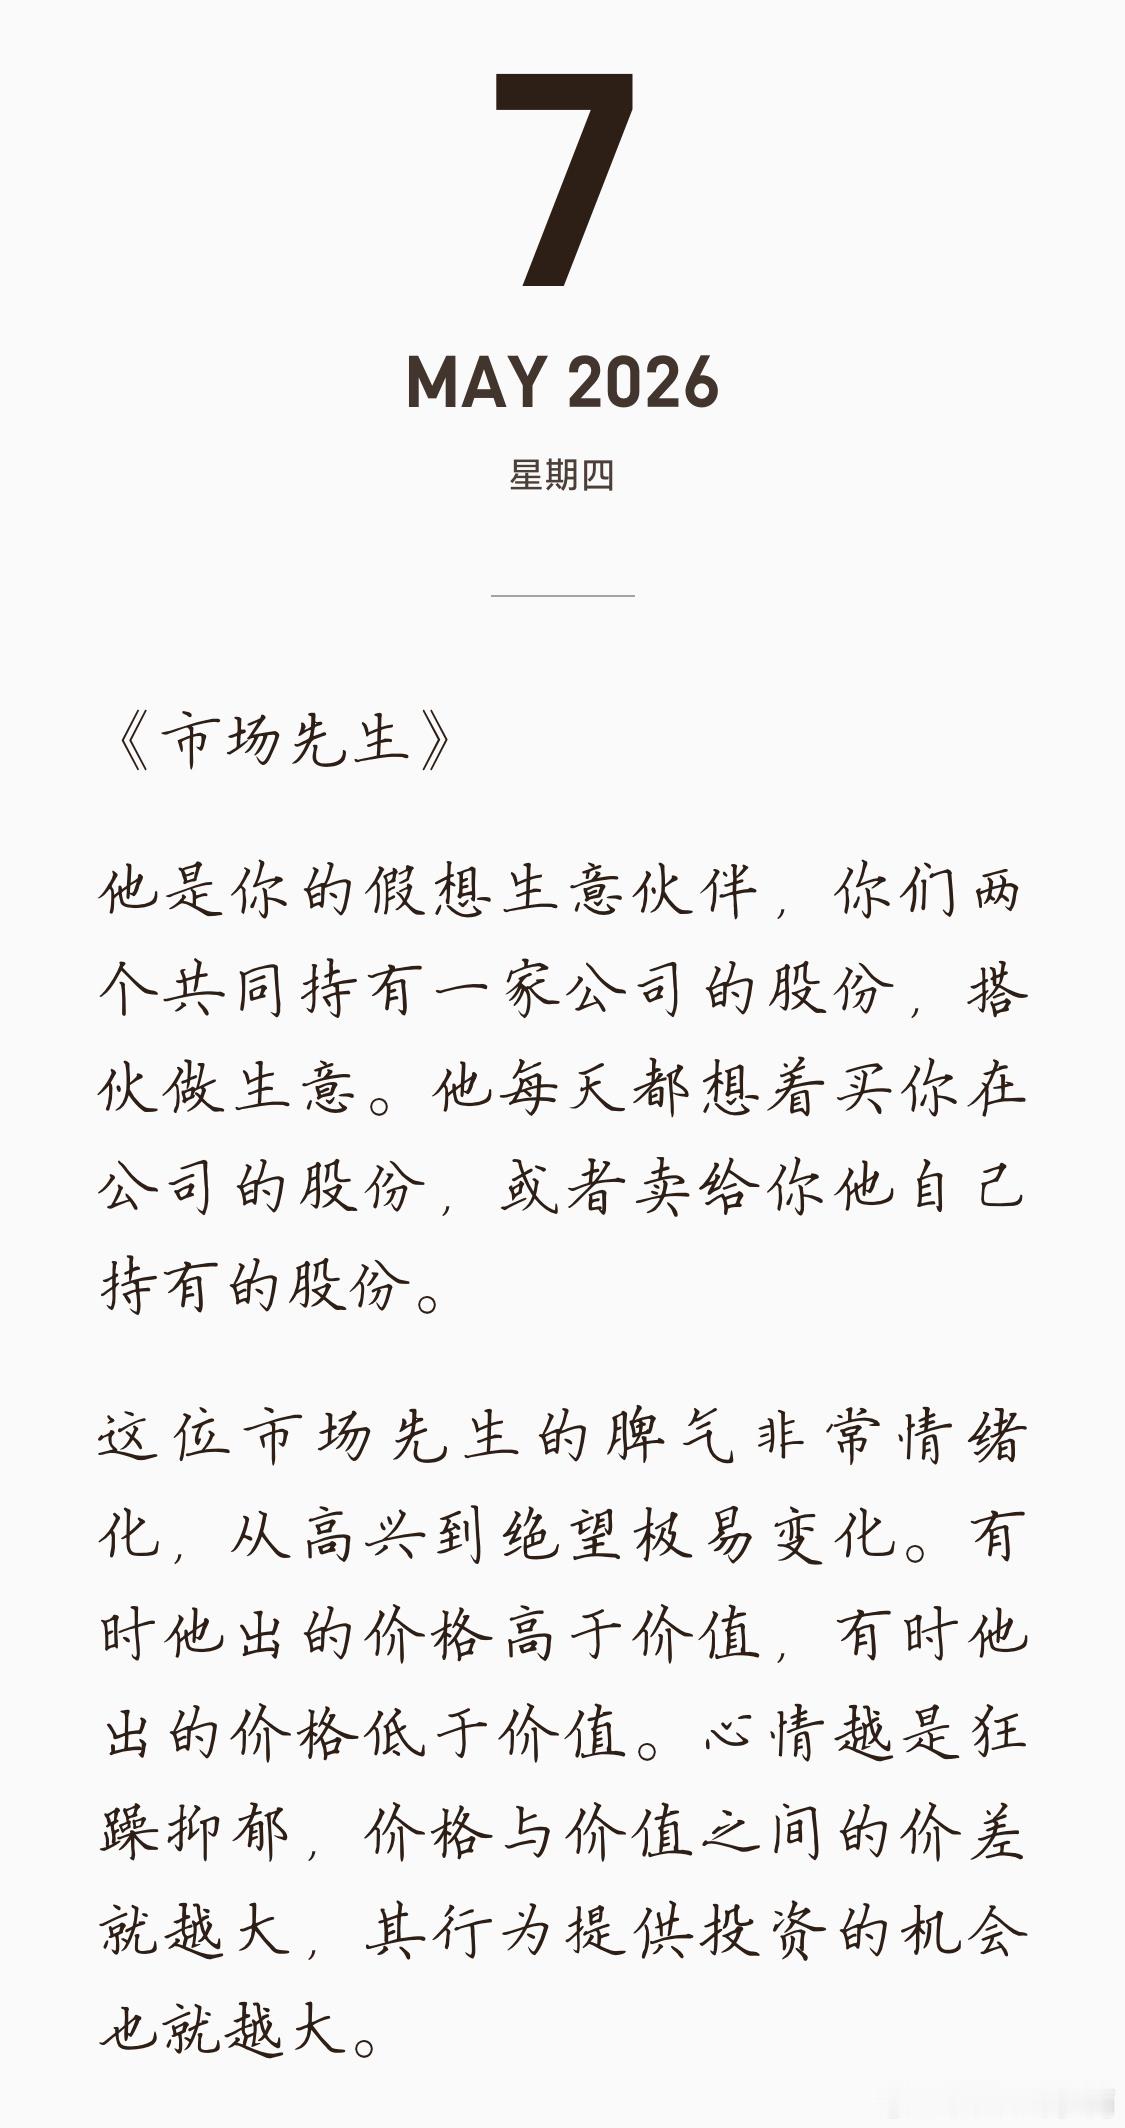 7
MAY 2026
星期四
《市场先生》
他是你的假想生意伙伴，你们两
个共同持有一家公司的股份，搭
伙做生意。他每天都想着买你在
公司的股份，或者卖给你他自己
持有的股份。
这位市场先生的脾气非常情绪
化，从高兴到绝望极易变化。有
时他出的价格高于价值，有时他
出的价格低于价值。心情越是狂
躁抑郁，价格与价值之间的价差
就越大，其行为提供投资的机会
也就越大。